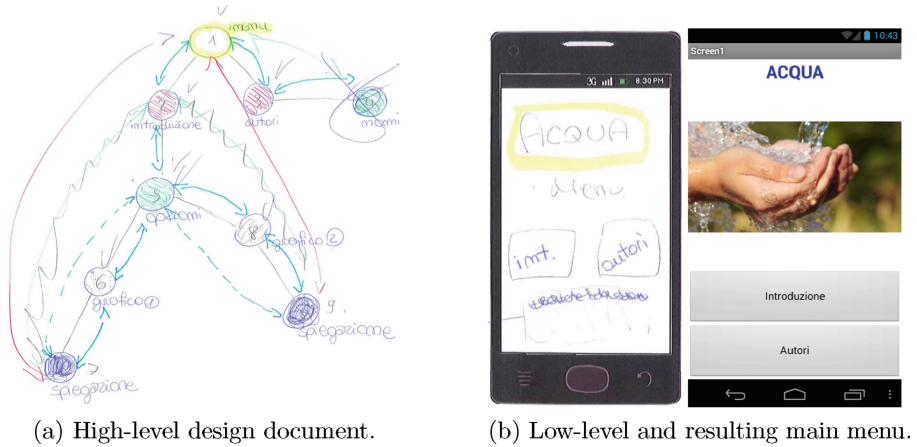 menu
1
2
3
introduzione
autori
nomi
5
gattomi
8
grafico 2
6
grafico 1
9
spiegazione
spiegazione
(a) High-level design document.
3G 8:30 PM
ACQUA
Menu
int.
autori
10:43
Screen1
ACQUA
Introduzione
Autori
(b) Low-level and resulting main menu.